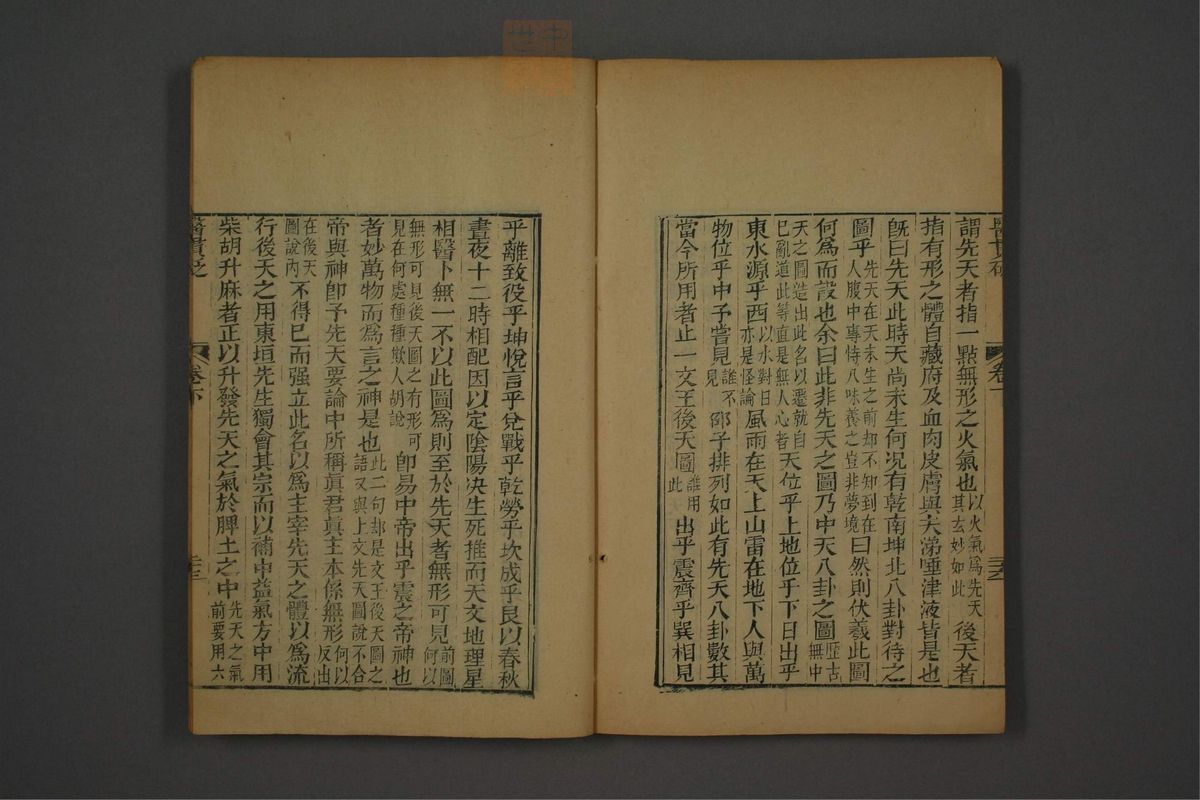 謂先天者指一點無形之火氣也以火氣爲先天其玄妙如此後天者
指有形之體自藏府及血肉皮膚與夫涕唾津液皆是也
旣曰先天此時天尚未生何况有乾南坤北八卦對待之
圖乎先天在天未生之前却不知到在人腹中專恃八味養之豈非夢境曰然則伏羲此圖
何爲而設也余曰此非先天之圖乃中天八卦之圖歷古無中
天之圖造出此名以遷就自己亂道此等直是無人心者天位乎上地位乎下日出乎
東水源乎西以水對日亦是怪論風雨在天上山雷在地下人與萬
物位乎中予嘗見誰不見邵子排列如此有先天八卦數其
當今所用者止一文王後天圖誰用此出乎震齊乎巽相見
乎離致役乎坤悅言乎兌戰乎乾勞乎坎成乎艮以春秋
晝夜十二時相配因以定陰陽决生死推而天文地理星
相醫卜無一不以此圖爲則至於先天者無形可見前圖何以
無形可見後天圖之有形可見在何處種種欺人胡說卽易中帝出乎震之帝神也
者妙萬物而爲言之神是也此二句却是文王後天圖之語又與上文先天圖說不合
帝與神卽予先天要論中所稱眞君眞主本係無形何以反出
在後天圖說內不得已而强立此名以爲主宰先天之體以爲流
行後天之用東垣先生獨會其宗而以補中益氣方中用
柴胡升麻者正以升發先天之氣於脾土之中先天之氣前要用六
醫貫砭
卷下